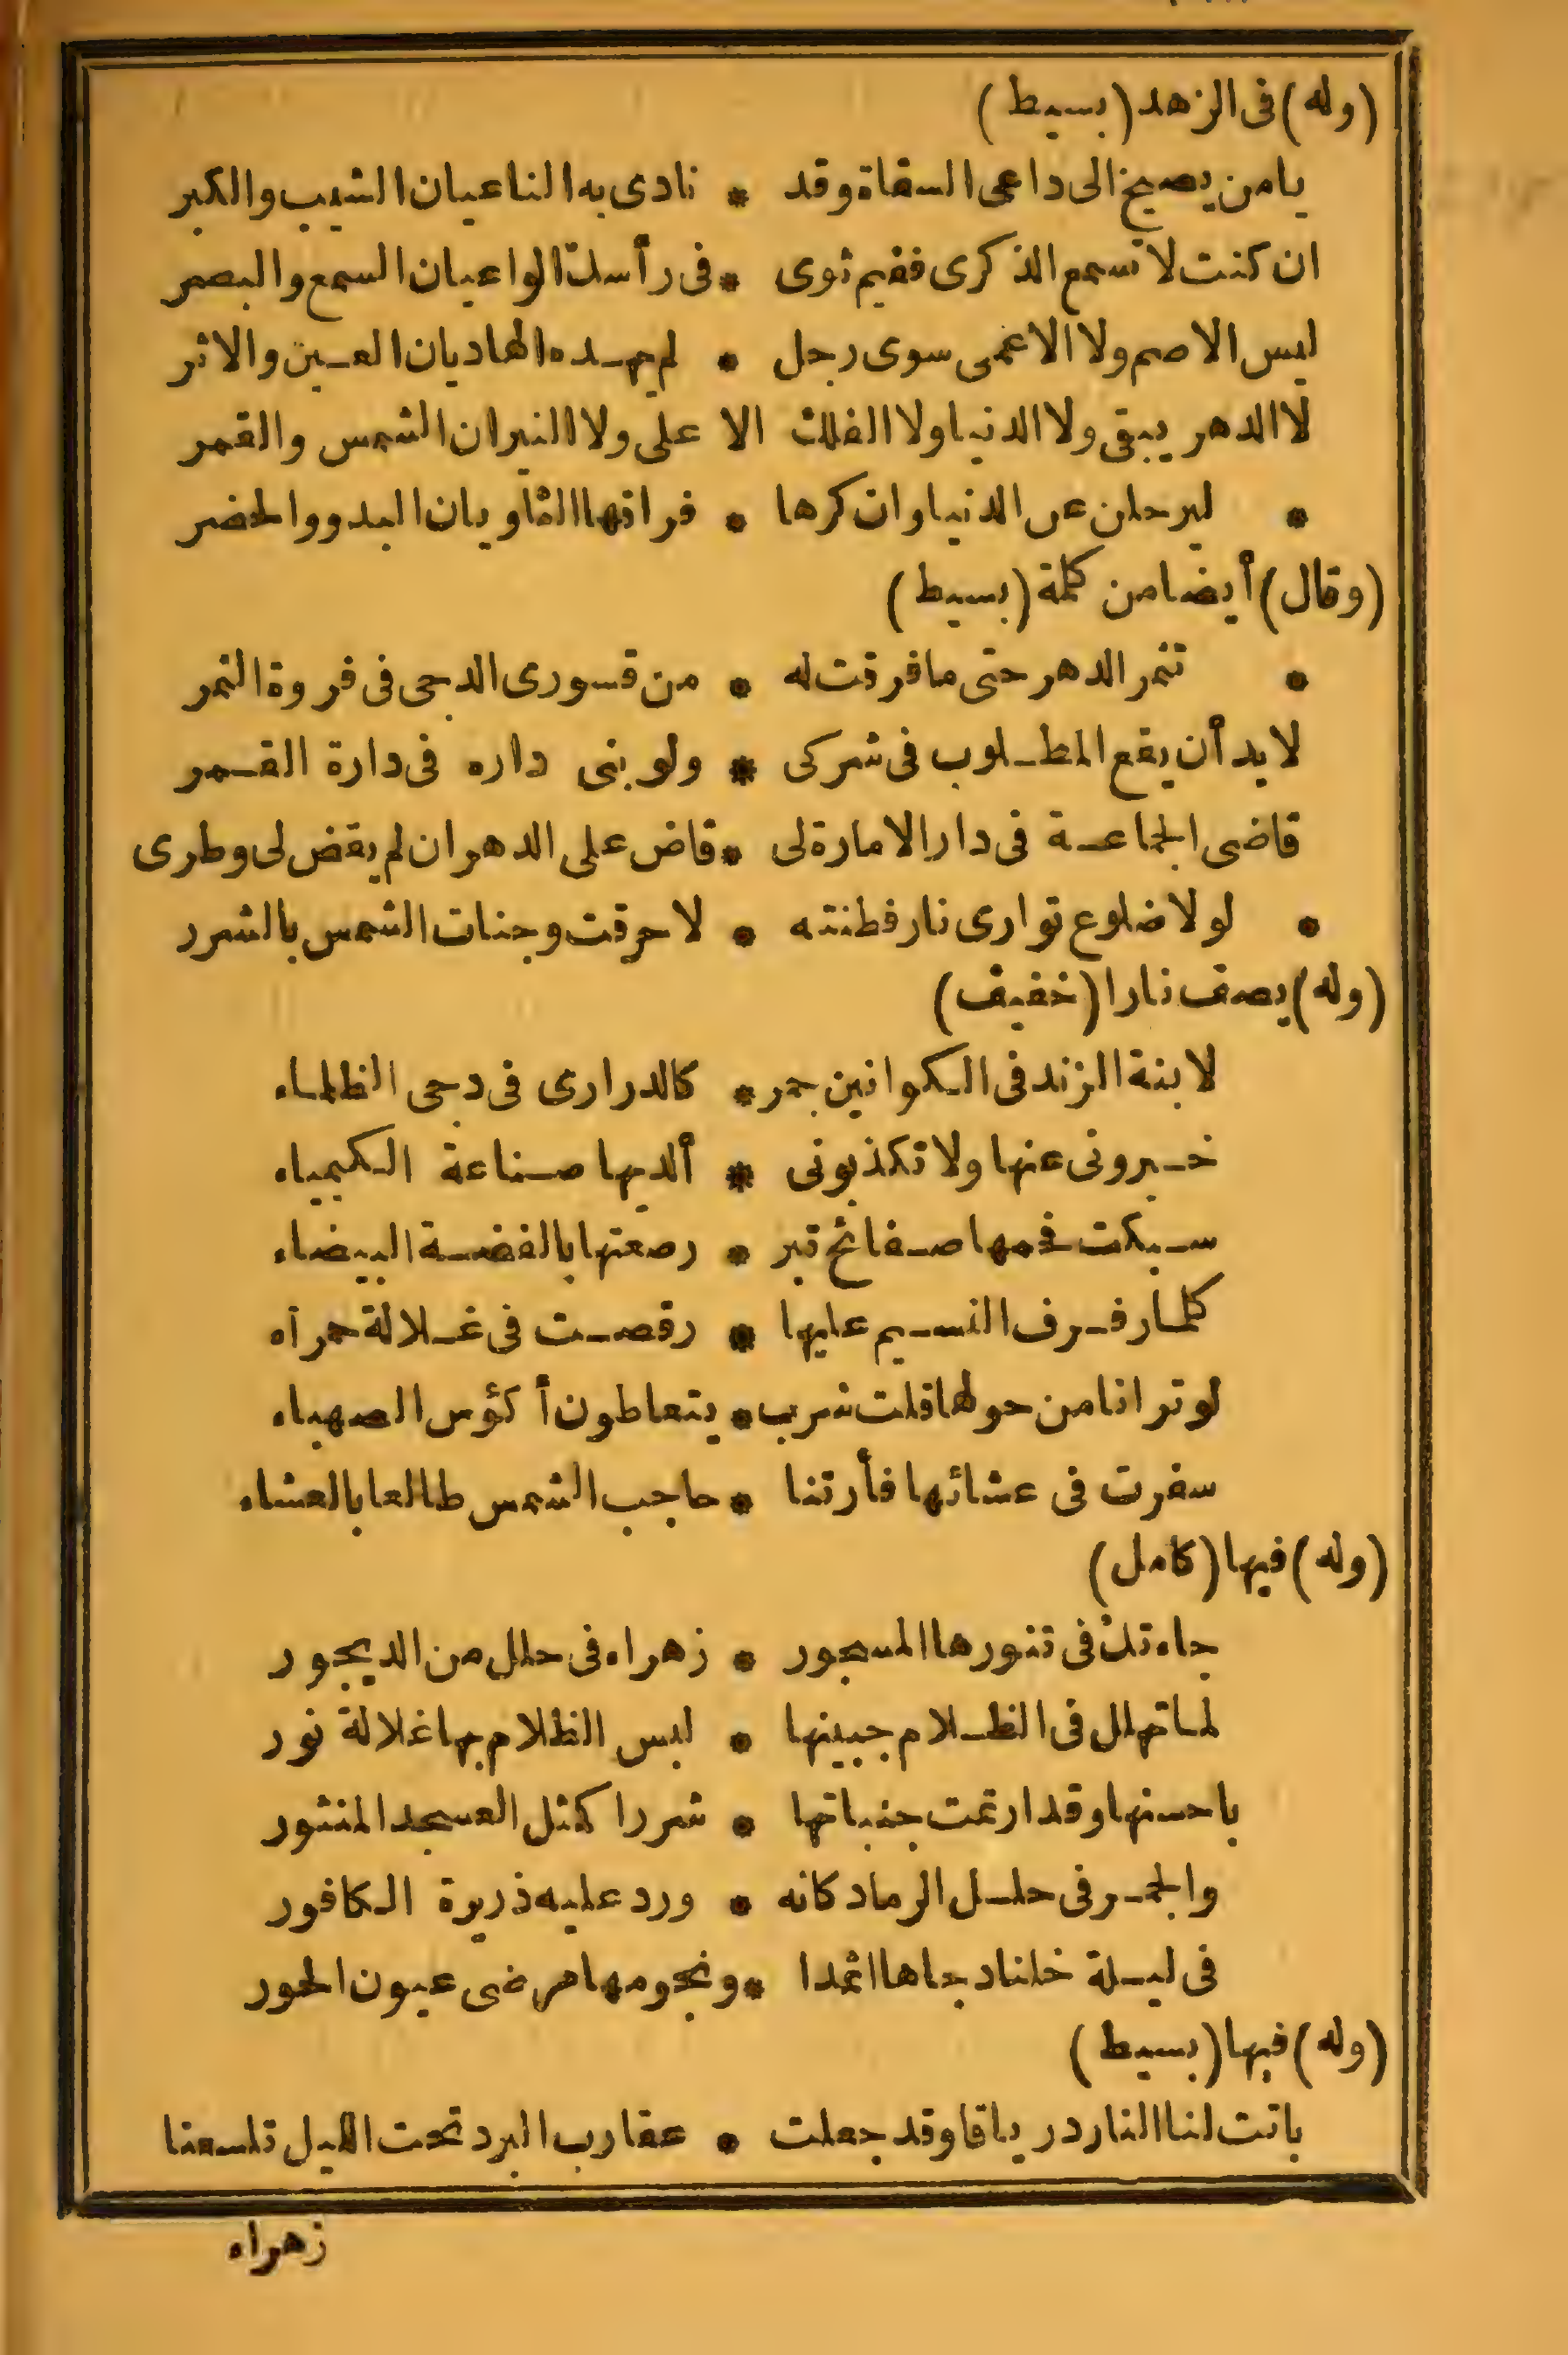 (وله) فى الزهد (بسيط)
يامن يصيخ الى داعى السقاة وقد * نادى به الناعيان الشيب والكبر
ان كنت لا تسمع الذكرى ففيم ثوى * فى رأسك الواعيان السمع والبصر
ليس الاصم ولا الاعمى سوى رجل * لم يهده الهاديان العين والاثر
لا الدهر يبقى ولا الدنيا ولا الفلك الا على ولا النيران الشمس والقمر
* ليرحلن عن الدنيا وان كرها * فراقها الثاويان البدو والحضر
(وقال) أيضا من كلمة (بسيط)
* تنمر الدهر حتى ما فرقت له * من قسورى الدجى فى فروة النمر
لا بد أن يقع المطلوب فى شركى * ولو بنى داره فى دارة القمر
قاضى الجماعة فى دار الامارة لى * قاض على الدهر ان لم يقض لى وطرى
* لولا ضلوع توارى نار فطنته * لاحرقت وجنات الشمس بالشرر
(وله) يصف نارا (خفيف)
لابنة الزند فى الكوانين جمر * كالدرارى فى دجى الظلماء
خبرونى عنها ولا تكذبونى * ألديها صناعة الكيمياء
سبكت فحمها صفائح تبر * رصعتها بالفضة البيضاء
كلما رفرف النسيم عليها * رقصت فى غلالة حمراء
لو ترانا من حولها قلت شرب * يتعاطون أكؤس الصهباء
سفرت فى عشائها فأرتنا * حاجب الشمس طالعا بالعشاء
(وله) فيها (كامل)
جاءتك فى تنورها المسجور * زهراء فى حلل من الديجور
لما تهلل فى الظلام جبينها * لبس الظلام بها غلالة نور
ياحسنها وقد ارتمت جنباتها * شررا كمثل العسجد المنثور
والجمر فى حلل الرماد كانه * ورد عليه ذريرة الكافور
فى ليلة خلنا دجاها اثمدا * ونجومها مرضى عيون الحور
(وله) فيها (بسيط)
باتت لنا النار درياقا وقد جعلت * عقارب البرد تحت الليل تلسعنا
زهراء